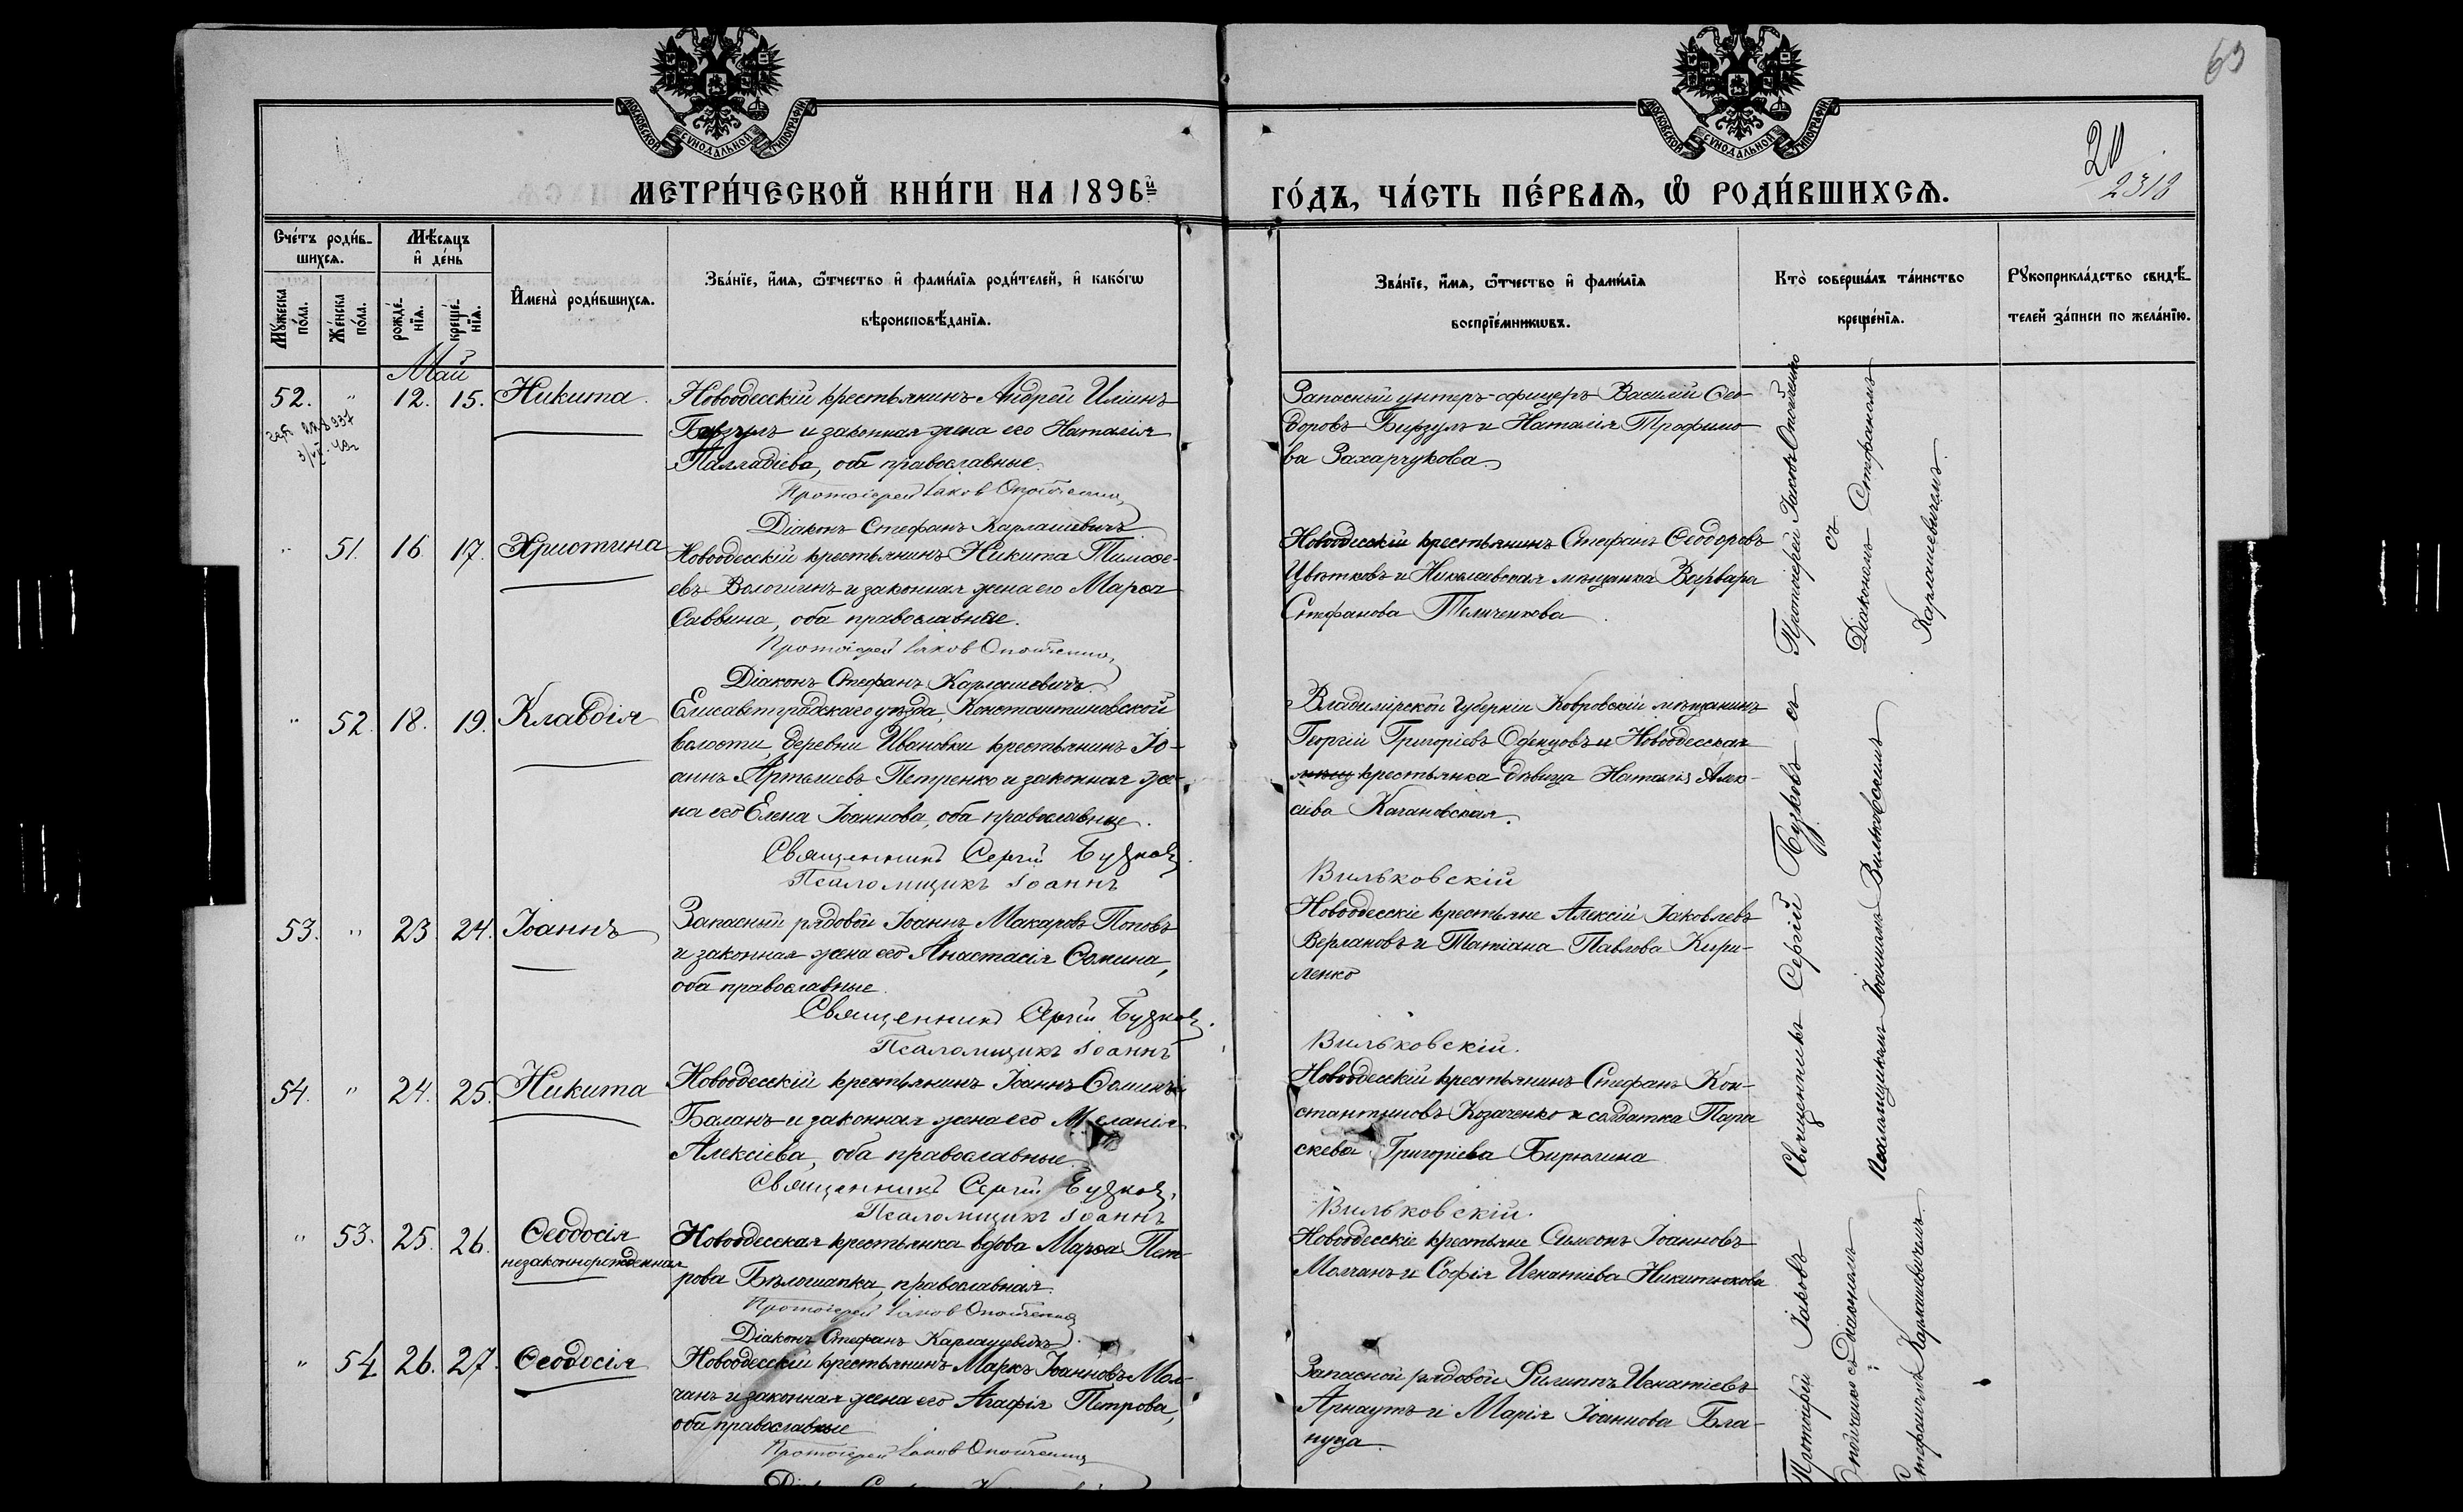 63
МОСКОВСКОЙ СѴНОДАЛЬНОЙ ТИПОГРАФІИ
МОСКОВСКОЙ СѴНОДАЛЬНОЙ ТИПОГРАФІИ
20
2318
МЕТРИ́ЧЕСКОЙ КНИ́ГИ НА 1896й
ГО́ДЪ, ЧА́СТЬ ПЕ́РВАѦ, Ѡ РОДИ́ВШИХСѦ.
Сче́тъ роди́в-
шихсѧ.
Мѣ́сѧцъ
и҆ де́нь
Мꙋ́жеска
по́ла.
Же́нска
по́ла.
рожде́-
нїѧ.
креще́-
нїѧ.
И҆мена̀ роди́вшихсѧ.
Зва́нїе, и҆́мѧ, ѻ҆́тчество и҆ фами́лїѧ роди́телей, и҆ како́гѡ
вѣроисповѣ́данїѧ.
Зва́нїе, и҆́мѧ, ѻ҆́тчество и҆ фами́лїѧ
воспрїе́мникѡвъ.
Кто̀ соверша́лъ та́инство
креще́нїѧ.
Рꙋкоприкла́дство свидѣ́-
телей за́писи по жела́нїю.
Май
52. " 12. 15. Никита
Новоодесскій крестьянинъ Андрей Иліинъ
Бирзулъ и законная жена его Наталія
Палладіева, оба православные.
Протоіерей Іаковъ Опойченко
Діаконъ Стефанъ Карлашевичъ
Запасный унтеръ-офицеръ Василій Ѳео-
доровъ Бирзулъ и Наталія Трофимо-
ва Захарчукова
Протоіерей Іаковъ Опойченко
съ
Діакономъ Стефаномъ
Карлашевичемъ.
" 51. 16. 17. Христина
Новоодесскій крестьянинъ Никита Тимоѳе-
евъ Вологинъ и законная жена его Марѳа
Саввина, оба православные.
Протоіерей Іаковъ Опойченко
Діаконъ Стефанъ Карлашевичъ
Новоодесскій крестьянинъ Стефанъ Ѳеодоровъ
Цвѣтковъ и Николаевская мѣщанка Варвара
Стефанова Теличенкова
" 52. 18. 19. Клавдія
Елисаветградскаго уѣзда, Константиновской
волости, деревни Ивановки крестьянинъ Іо-
аннъ Артемиевъ Петренко и законная же-
на его Елена Іоаннова, оба православные.
Священникъ Сергій Бузковъ.
Псаломщикъ Іоаннъ
Вильковскій
Владимірской губерніи Ковровскій мѣщанинъ
Георгій Григоріевъ Оденцовъ и Новоодесская
мѣщ крестьянка дѣвица Наталія Алек-
сіева Качановская.
Священникъ Сергій Бузковъ съ
Псаломщикомъ Іоанномъ Вильковскимъ
53. " 23. 24. Іоаннъ
Запасный рядовой Іоаннъ Макаровъ Поповъ
и законная жена его Анастасія Ѳомина,
оба православные.
Священникъ Сергій Бузковъ.
Псаломщикъ Іоаннъ
Вильковскій.
Новоодесскіе крестьяне Алексій Іаковлевъ
Верлановъ и Татіана Павлова Кири-
ленко
54. " 24. 25. Никита
Новоодесскій крестьянинъ Іоаннъ Ѳоминъ
Баланъ и законная жена его Меланія
Алексіева, оба православные.
Священникъ Сергій Бузковъ.
Псаломщикъ Іоаннъ
Вильковскій.
Новоодесскій крестьянинъ Стефанъ Кон-
стантиновъ Козаченко и солдатка Пара
скева Григоріева Бирюлина
" 53. 25. 26. Ѳеодосія
незаконнорожденная
Новоодесская крестьянка вдова Марѳа Пет-
рова Бѣлошапка, православная.
Протоіерей Іаковъ Опойченко
Діаконъ Стефанъ Карлашевичъ.
Новоодесскіе крестьяне Симеонъ Іоанновъ
Молчанъ и Софія Игнатіева Никитюкова
Протоіерей Іаковъ
Опойченко съ Діакономъ
Стефаномъ Карлашевичемъ
" 54. 26. 27. Ѳеодосія
Новоодесскій крестьянинъ Маркъ Іоанновъ Мол-
чанъ и законная жена его Агафія Петрова,
оба православные
Протоіерей Іаковъ Опойченко
Запасной рядовой Филиппъ Игнатіевъ
Арнаутъ и Марія Іоаннова Бла-
нуца.